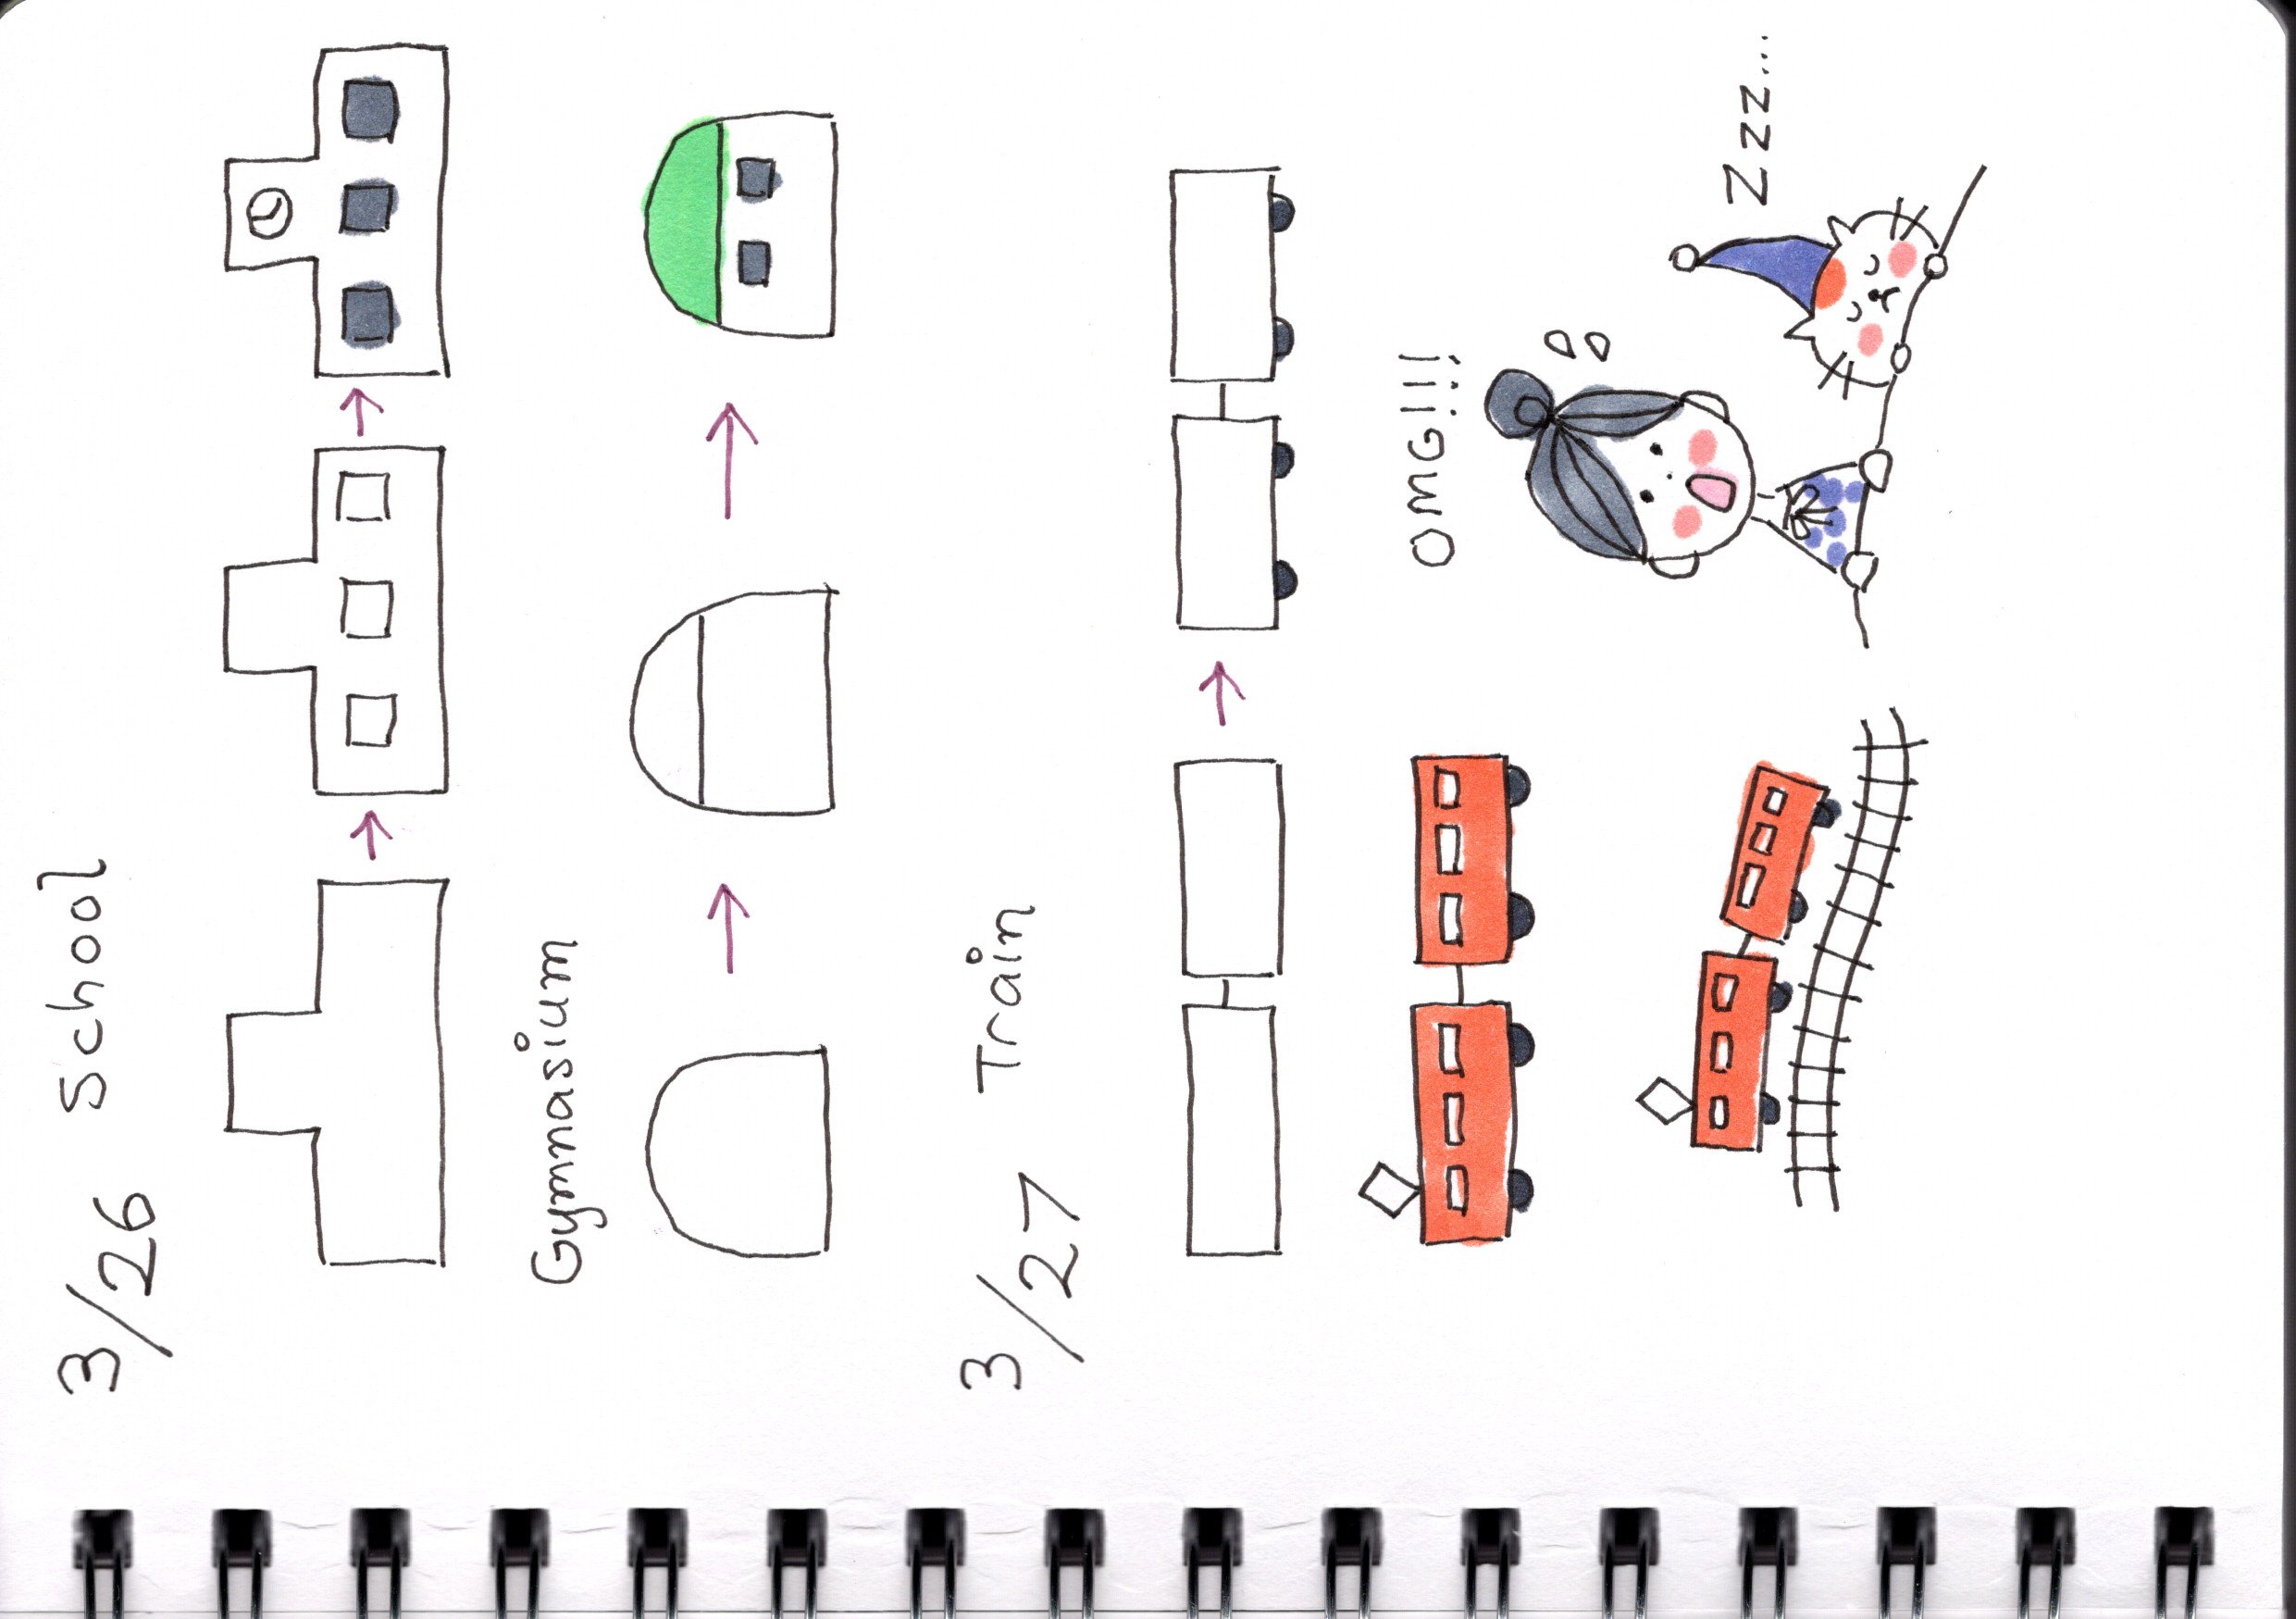 3/26 School
Gymnasium
3/27 Train
OMG!!!
Zzz...